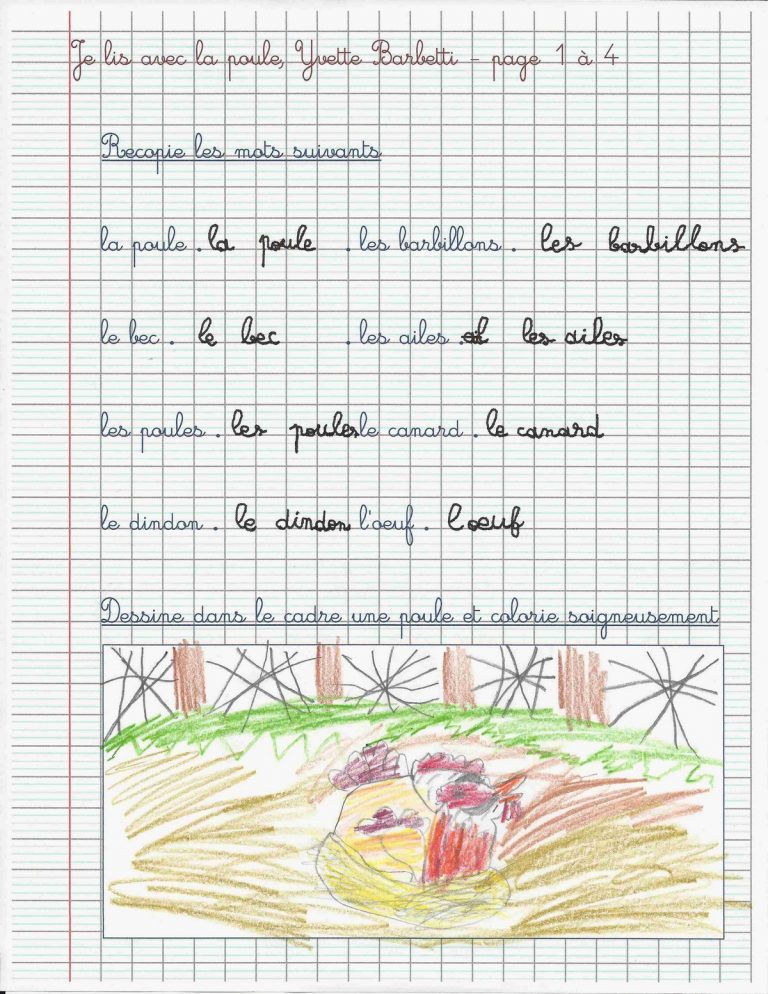 Je lis avec la poule, Yvette Barbetti - page 1 à 4
Recopie les mots suivants
la poule . la poule . les barbillons . les barbillons
le bec . le bec . les ailes . les ailes
les poules . les poules le canard . le canard
le dindon . le dindon l'oeuf . l'oeuf
Dessine dans le cadre une poule et colorie soigneusement